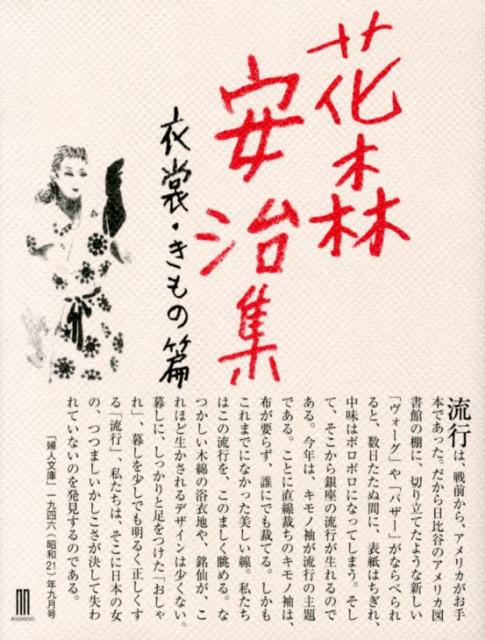 花森
安治集
衣裳・きもの篇
流行は、戦前から、アメリカがお手
本であった。だから日比谷のアメリカ図
書館の棚に、切り立てたような新しい
「ヴォーグ」や「バザー」がならべられ
ると、数日たたぬ間に、表紙はちぎれ、
中味はボロボロになってしまう。そし
て、そこから銀座の流行が生れるので
ある。今年は、キモノ袖が流行の主題
である。ことに直線裁ちのキモノ袖は、
布が要らず、誰にでも裁てる。しかも
これまでになかった美しい線。私たち
はこの流行を、このましく眺める。な
つかしい木綿の浴衣地や、銘仙が、こ
れほど生かされるデザインは少くない。
暮しに、しっかりと足をつけた「おしゃ
れ」、暮しを少しでも明るく正しくす
る「流行」、私たちは、そこに日本の女
の、つつましいかしこさが決して失わ
れていないのを発見するのである。
「婦人文庫」一九四六(昭和21)年九月号
BOOKEND